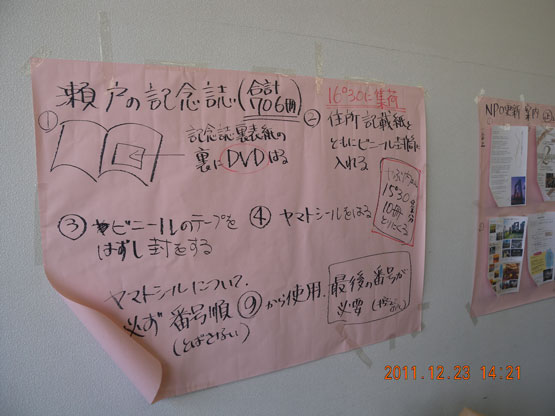 瀬戸の記念誌(合計
706冊)
16:30に集荷
①
記念誌裏表紙の
裏にDVDはる
② 住所記載紙を
ともにビニール封筒に
入れる
15:30
10冊
③ ビニールのテープを
はずし封をする
④ ヤマトシールをはる
ヤマトシールについて.
必ず番号順⑨から使用.
(とばさない)
最後の番号が
必要
NPO
2011.12.23 14:21